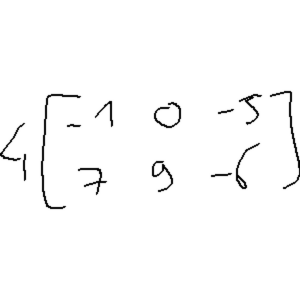 4 [ -1 0 -5
7 9 -6 ]